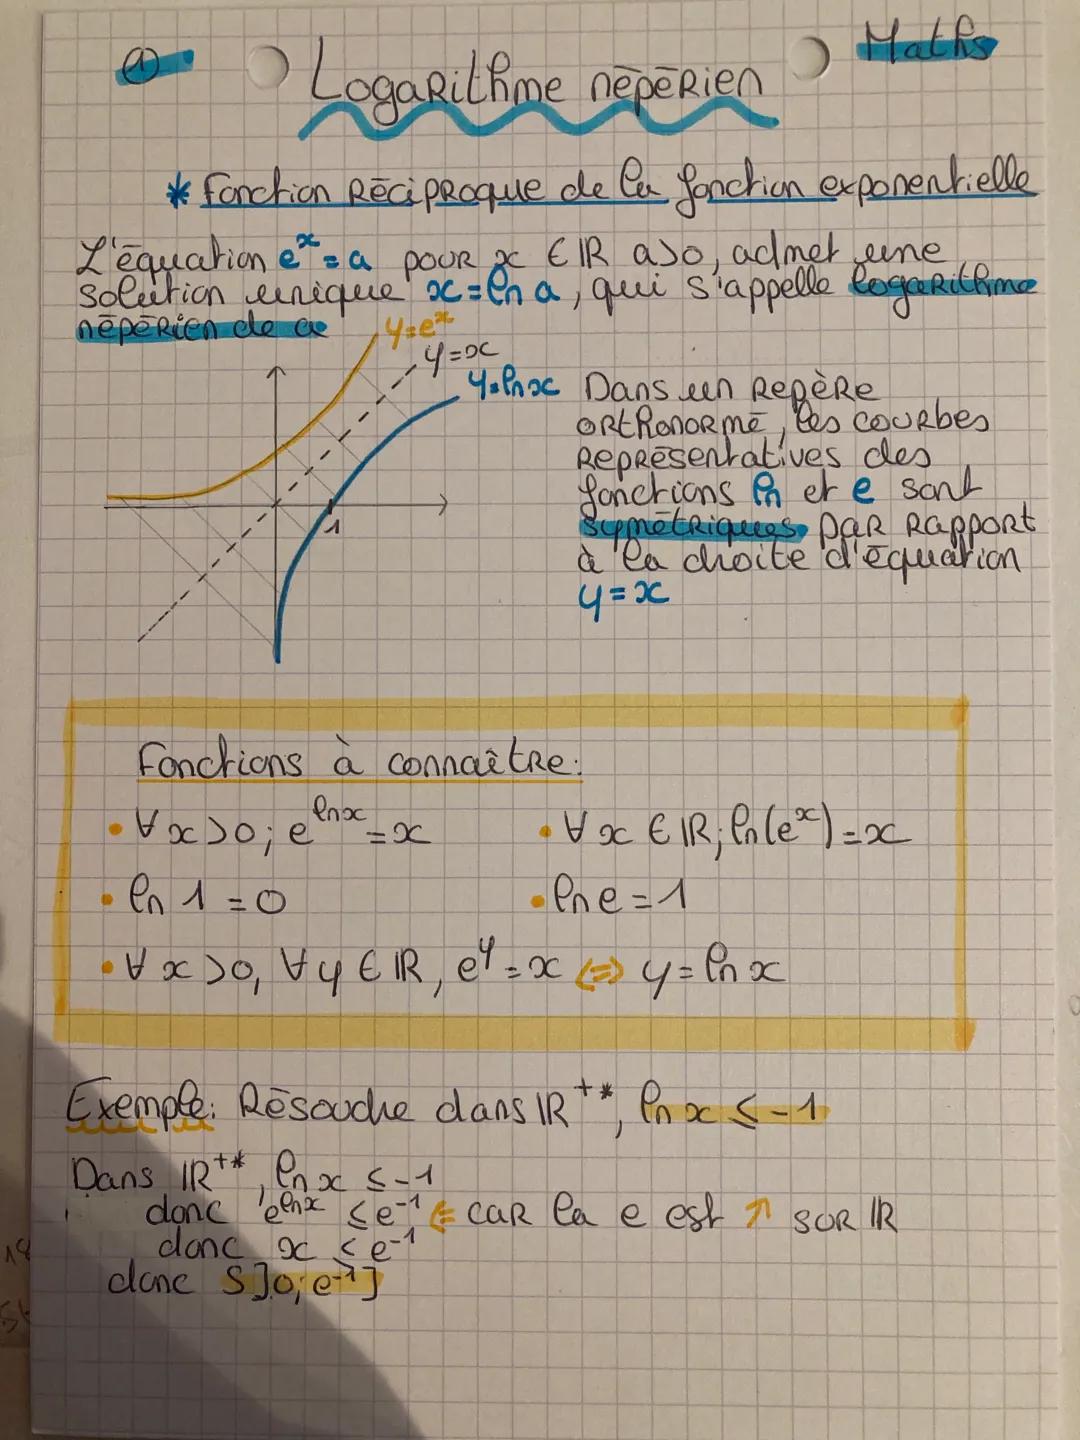 ① Logarithme népérien Maths
* Fonction Réciproque de la fonction exponentielle
L'équation eˣ = a pour x ∈ ℝ a>0, admet une
solution unique x = ln a, qui s'appelle logarithme
népérien de a
y=eˣ
y=x
y=ln x
1
Dans un repère
orthonormé, les courbes
représentatives des
fonctions ln et e sont
symétriques par rapport
à la droite d'équation
y = x
Fonctions à connaître:
• ∀x>0; e^(ln x) = x • ∀x ∈ ℝ; ln(eˣ) = x
• ln 1 = 0 • ln e = 1
• ∀x>0, ∀y ∈ ℝ, e^y = x <=> y = ln x
Exemple: Résoudre dans ℝ⁺*, ln x ≤ -1
Dans ℝ⁺*, ln x ≤ -1
donc e^(ln x) ≤ e⁻¹ ⇐ car la e est ↗ sur ℝ
donc x ≤ e⁻¹
donc S ]0; e⁻¹]